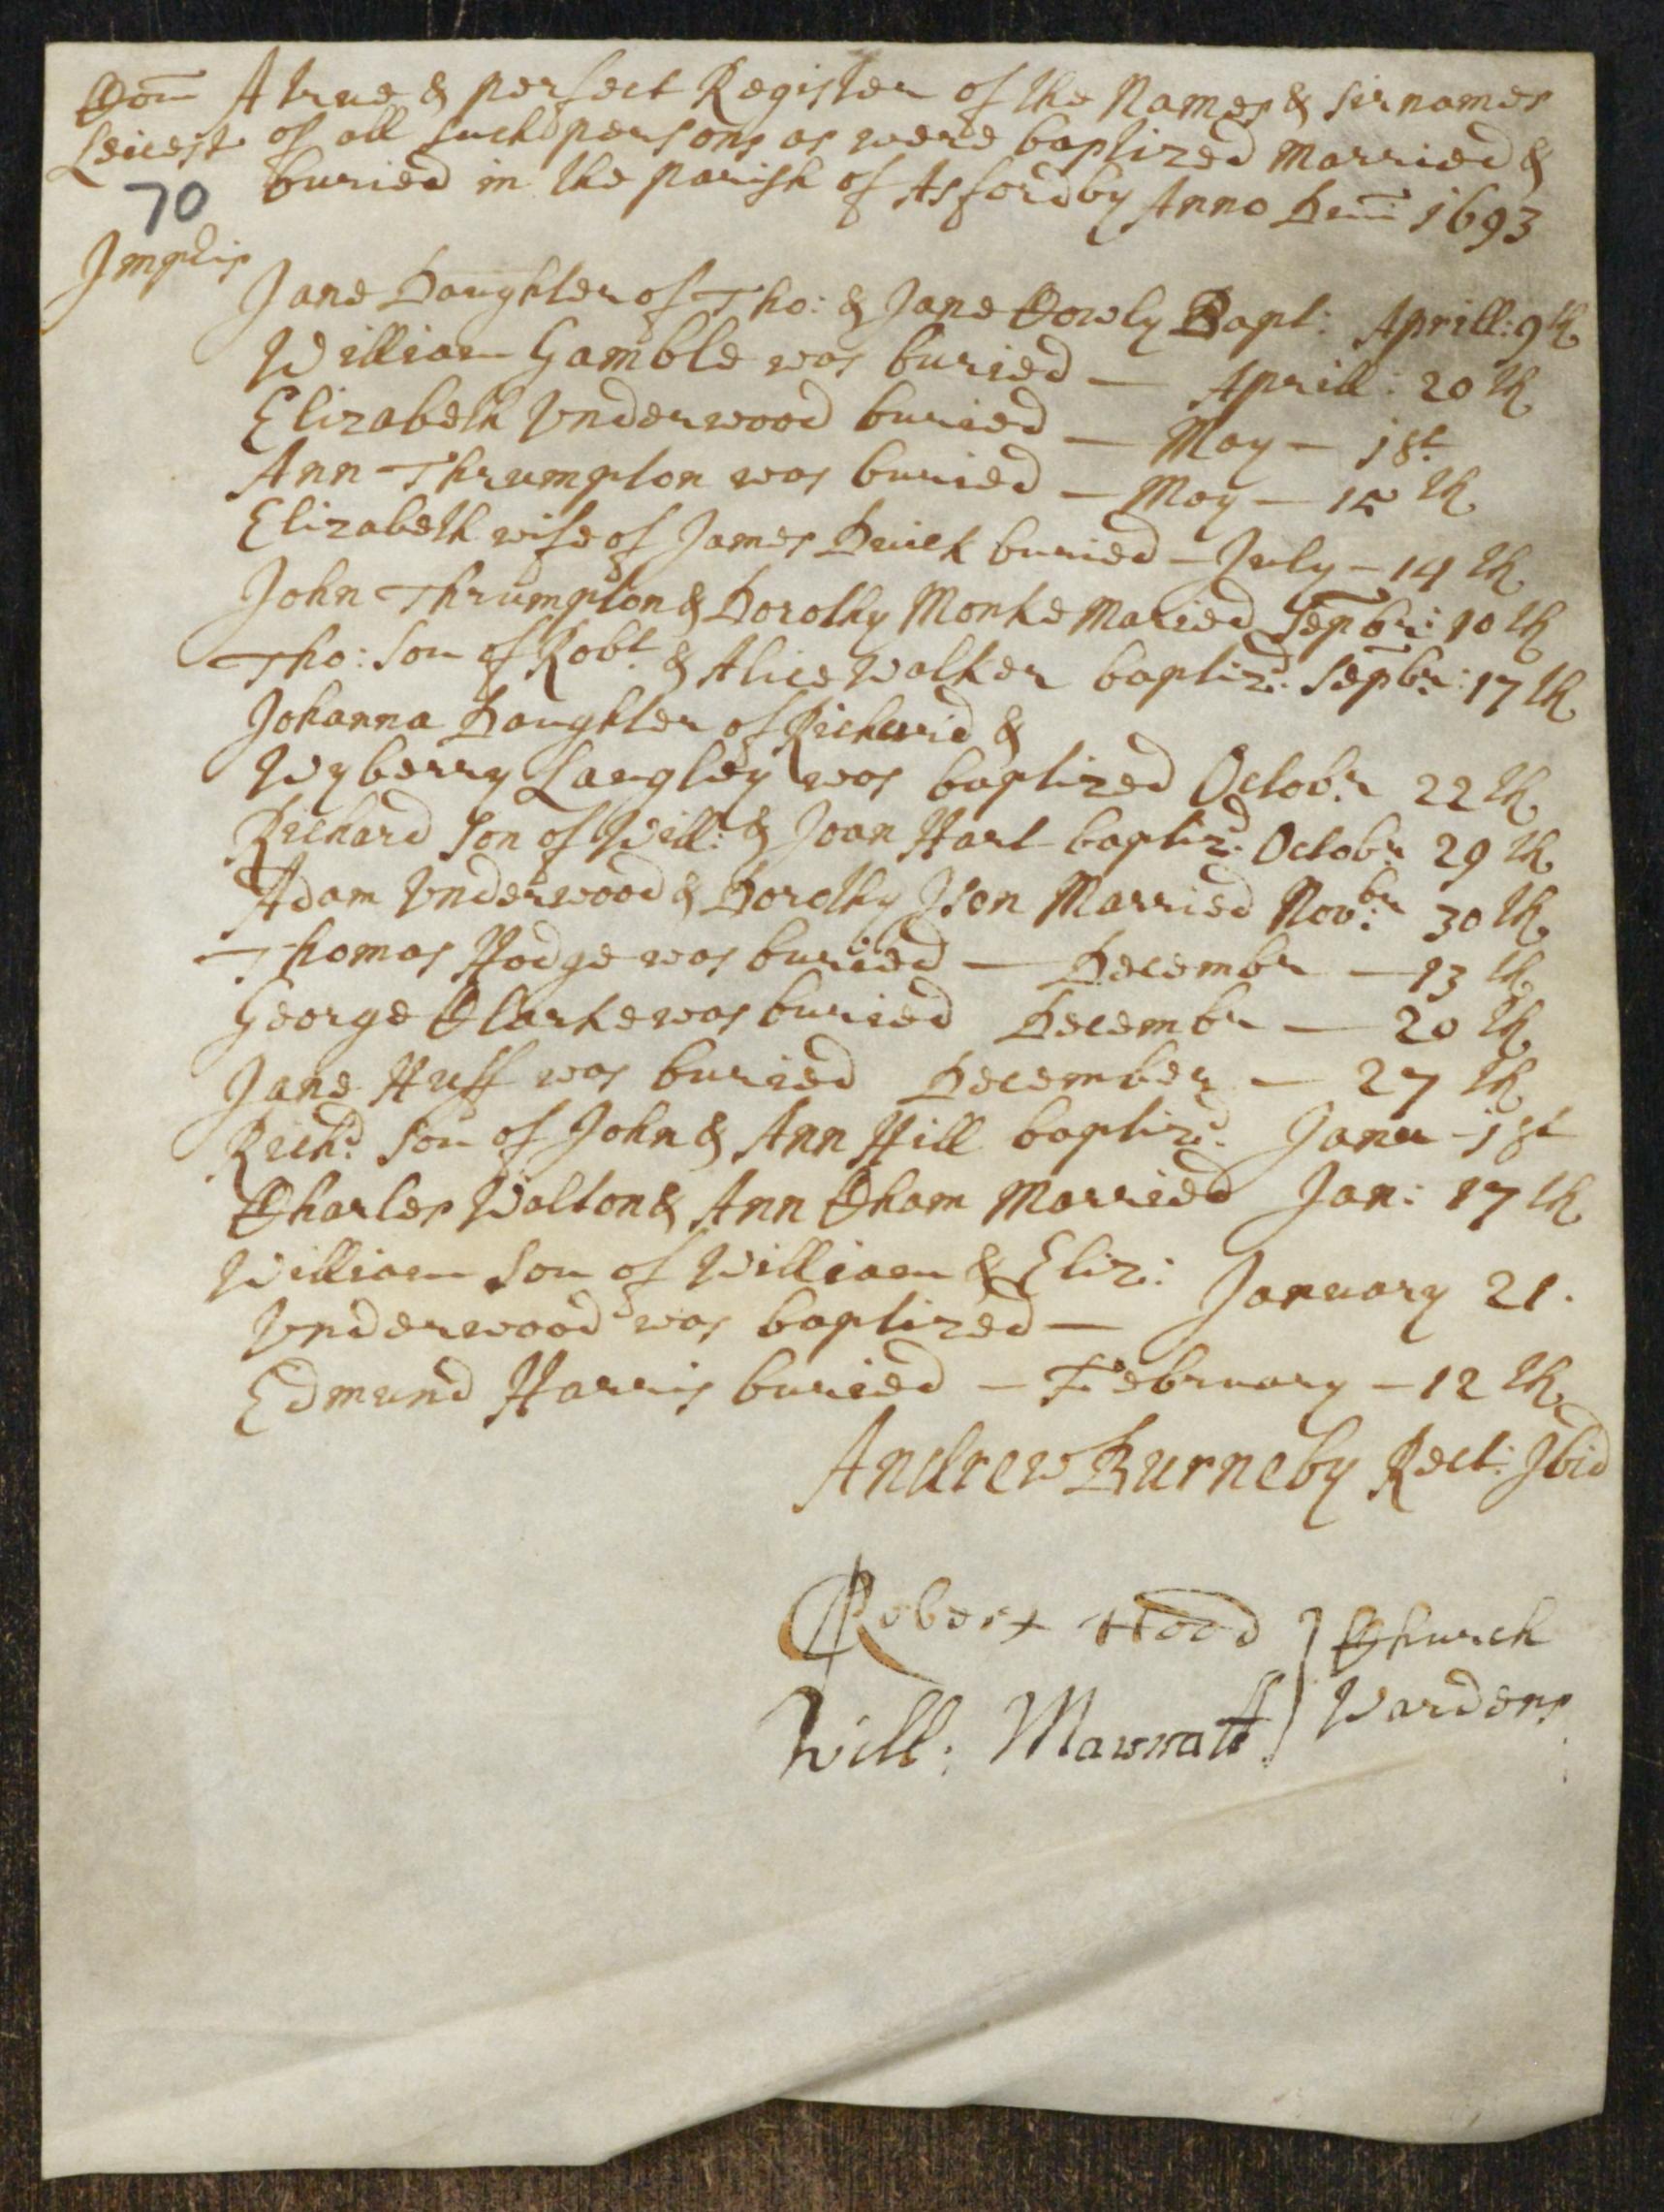 Com A true & perfect Register of the Names & sirnames
Leicest of all such persons as were baptized Married &
70 buried in the parish of Asfordby Anno Dom 1693
Impris
Jane Daughter of Tho: & Jane Cowly Bapt: Aprill: 9th
William Gamble was buried — Aprill: 20th
Elizabeth Underwood buried — May — 1st
Ann Thrumpton was buried — May — 15th
Elizabeth wife of James buried — July — 14th
John Thrumpton & Dorothy Monke Maried Sepbr: 10th
Tho: Son of Robt & Alice Walker baptizd: Sepbr: 17th
Johanna Daughter of Richard &
Wyberry Langley was baptized Octobr 22th
Richard Son of Will: & Joan Hart baptizd: Octobr 29th
Adam Underwood & Dorothy Ison Married Novbr: 30th
Thomas Hodge was buried — Decembr — 13th
George Clarke was buried Decembr — 20th
Jane Huff was buried December — 27th
Richd Son of John & Ann Hill baptizd: Janu - 1st
Charles Walton & Ann Cham Married Jan: 17th
William Son of William & Eliz: January 21.
Underwood was baptized —
Edmund Harris buried — February — 12th
Andrew Burneby Rect: Ibid
Robert Hood } Church
Will: Wardens